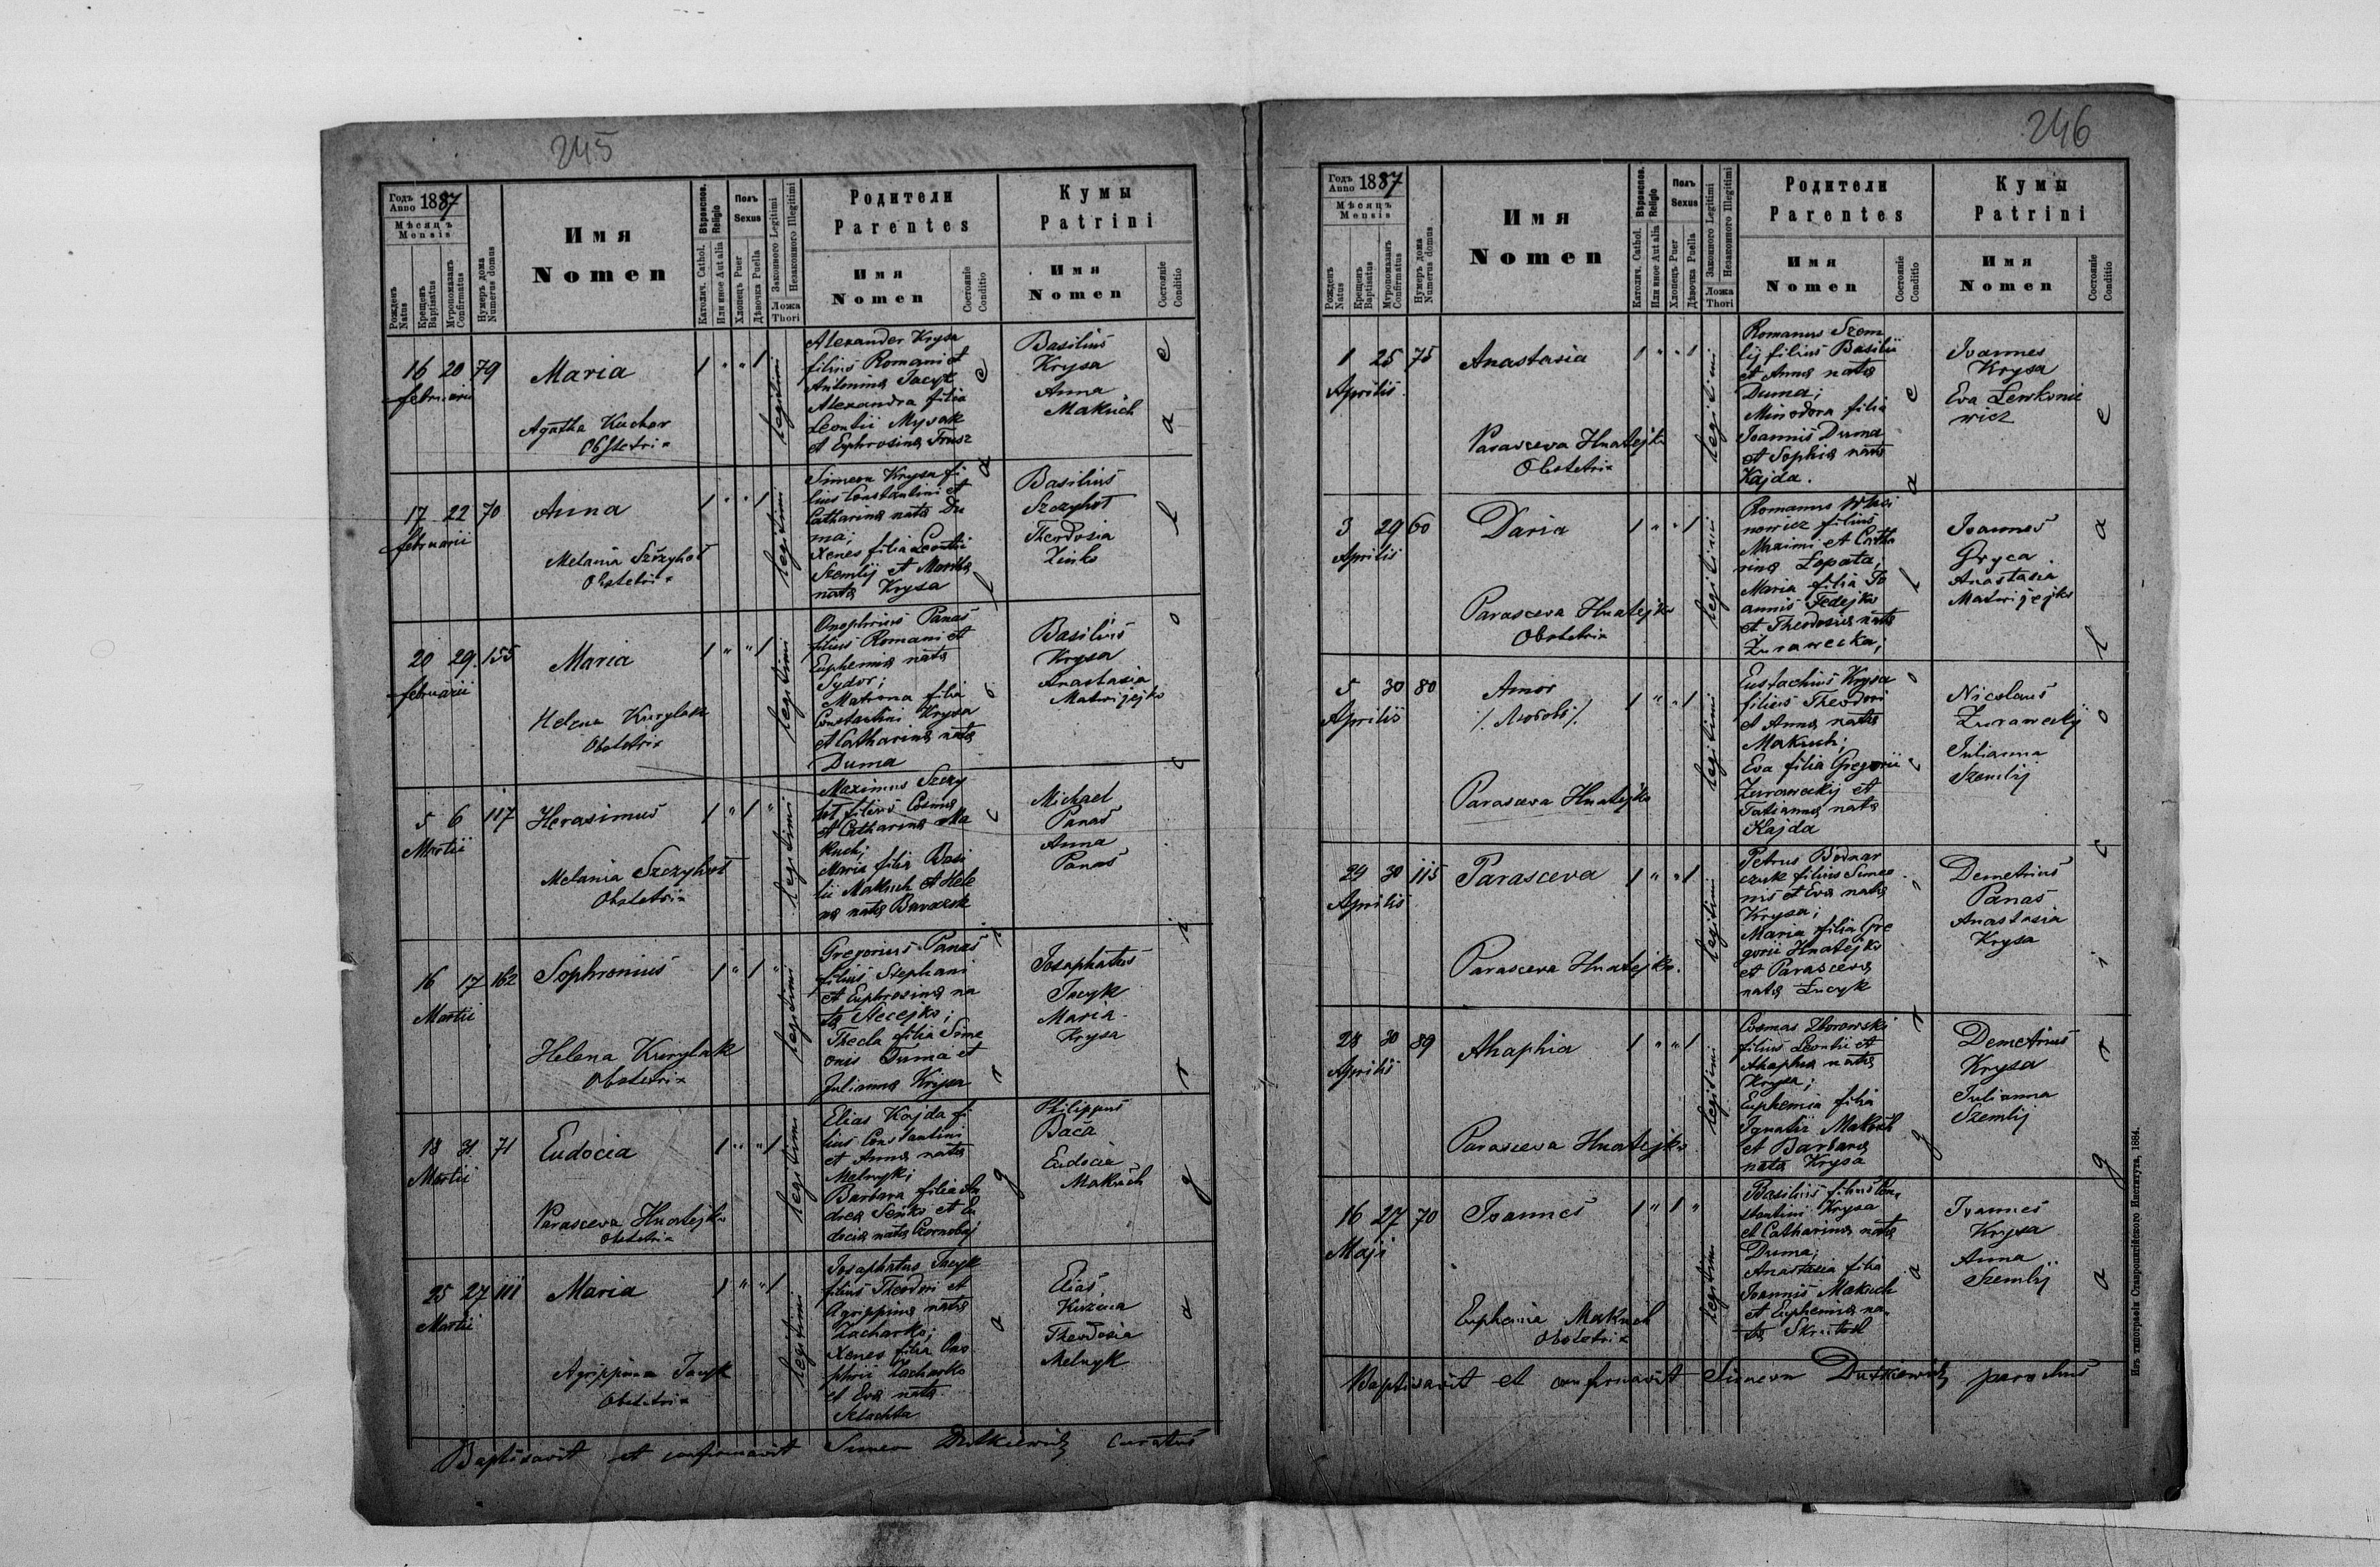 245
Годъ Anno 1887
Мѣсяцъ Mensis
Рожденъ Natus
Крещенъ Baptisatus
Мѵропомазанъ Confirmatus
Нумеръ дома Numerus domus
Имя Nomen
Вѣроиспов. Religio
Католич. Cathol.
Или иное Aut alia
Полъ Sexus
Хлопецъ Puer
Дѣвочка Puella
Законного Legitimi
Незаконного Illegitimi
Ложа Thori
Родители Parentes
Имя Nomen
Состояніе Conditio
Кумы Patrini
Имя Nomen
Состояніе Conditio
16 20 79
februarii
Maria
Agatha Kuchar
Obstetrix
legitimi
Alexander Krysa
filius Romani et
Antonina Jacyk
Alexandra filia
Leontii Mysak
et Euphrosina
Basilius
Krysa
Anna
Makuch
17 22 70
februarii
Anna
Melania Szczyhot
Obstetrix
legitimi
Simeon Krysa fi
lius Constantini et
Catharina nata Du
ma;
Xenes filia Leontii
Szemlij et
nata Krysa
Basilius
Szczyhot
Theodosia
Zinko
20 29 155
februarii
Maria
Helena Kurylak
Obstetrix
legitimi
Onophrius Panas
filius Romani et
Euphemia nata
Sydor;
Matrona filia
Constantini Krysa
et Catharina nata
Duma
Basilius
Krysa
Anastasia
Matwijejko
5 6 117
Martii
Herasimus
Melania Szczyhot
Obstetrix
legitimi
Maximus Szczy
hot filius Cosma
et Catharina Ma
kuch;
Maria filia Basi
lii Makuch et Hele
na nata
Michael
Panas
Anna
Panas
16 17 162
Martii
Sophronius
Helena Kurylak
Obstetrix
legitimi
Gregorius Panas
filius Stephani
et Euphrosina na
ta
Thecla filia Sime
onis Duma et
Julianna Krysa
Josaphatus
Jacyk
Maria
Krysa
18 31 71
Martii
Eudocia
Parasceva Hnatejko
Obstetrix
legitimi
Elias Kajda fi
lius Constantini
et Anna nata
Melnyk;
Barbara filia An
drea Senko et Eu
docia nata Czornobaj
Philippus
Baca
Eudocia
Makuch
25 27 111
Martii
Maria
Agrippina Jacyk
Obstetrix
legitimi
Josaphatus Jacyk
filius Theodori et
Agrippina nata
Zacharko;
Xenes filia Ono
phrii Zacharko
et Eva nata
Szlachta
Elias
Theodosia
Melnyk
agricolae
agricolae
Baptisavit et confirmavit Simeon Dutkiewicz curatus
246
Годъ Anno 1887
Мѣсяцъ Mensis
Рожденъ Natus
Крещенъ Baptisatus
Мѵропомазанъ Confirmatus
Нумеръ дома Numerus domus
Имя Nomen
Вѣроиспов. Religio
Католич. Cathol.
Или иное Aut alia
Полъ Sexus
Хлопецъ Puer
Дѣвочка Puella
Законного Legitimi
Незаконного Illegitimi
Ложа Thori
Родители Parentes
Имя Nomen
Состояніе Conditio
Кумы Patrini
Имя Nomen
Состояніе Conditio
1 25 75
Aprilis
Anastasia
Parasceva Hnatejko
Obstetrix
legitimi
Romanus Szem
lij filius Basilii
et Anna nata
Duma;
Minodora filia
Joannis Duma
et Sophia nata
Kajda.
Joannes
Krysa
Eva Lewkonie
wicz
3 29 60
Aprilis
Daria
Parasceva Hnatejko
Obstetrix
legitimi
Romanus
nowicz filius
Maximi et Catha
rina Lopata;
Maria filia Jo
annis Fedejko
et Theodosia nata
Żurawecka;
Joannes
Gryca
Anastasia
Matwijejko
5 30 80
Aprilis
Amor
/. Любовь /.
Parasceva Hnatejko
legitimi
Eustachius Krysa
filius Theodori
et Anna nata
Makuch;
Eva filia Gregorii
Żuraweckij et
Tatianna nata
Kajda
Nicolaus
Żuraweckij
Julianna
Szemlij
29 30 115
Aprilis
Parasceva
Parasceva Hnatejko.
legitimi
Petrus Bodnar
czuk filius Simeo
nis et Eva nata
Krysa;
Maria filia Gre
gorii Hnatejko
et Parasceva
nata Łucyk
Demetrius
Panas
Anastasia
Krysa
28 30 89
Aprilis
Ahaphia
Parasceva Hnatejko
legitimi
Cosmas Zborowski
filius Leontii et
Ahaphia nata
Krysa;
Euphemia filia
Ignatii Makuch
et Barbara
nata Krysa
Demetrius
Krysa
Julianna
Szemlij
16 27 70
Maji
Joannes
Euphemia Makuch
Obstetrix
legitimi
Basilius filius Con„
stantini Krysa
et Catharina nata
Duma;
Anastasia filia
Joannis Makuch
et Euphemia na„
ta
Joannes
Krysa
Anna
Szemlij
agricolae
agricolae
Baptisavit et confirmavit Simeon Dutkiewicz parochus
Изъ типографіи Ставропигійского Института, 1884.